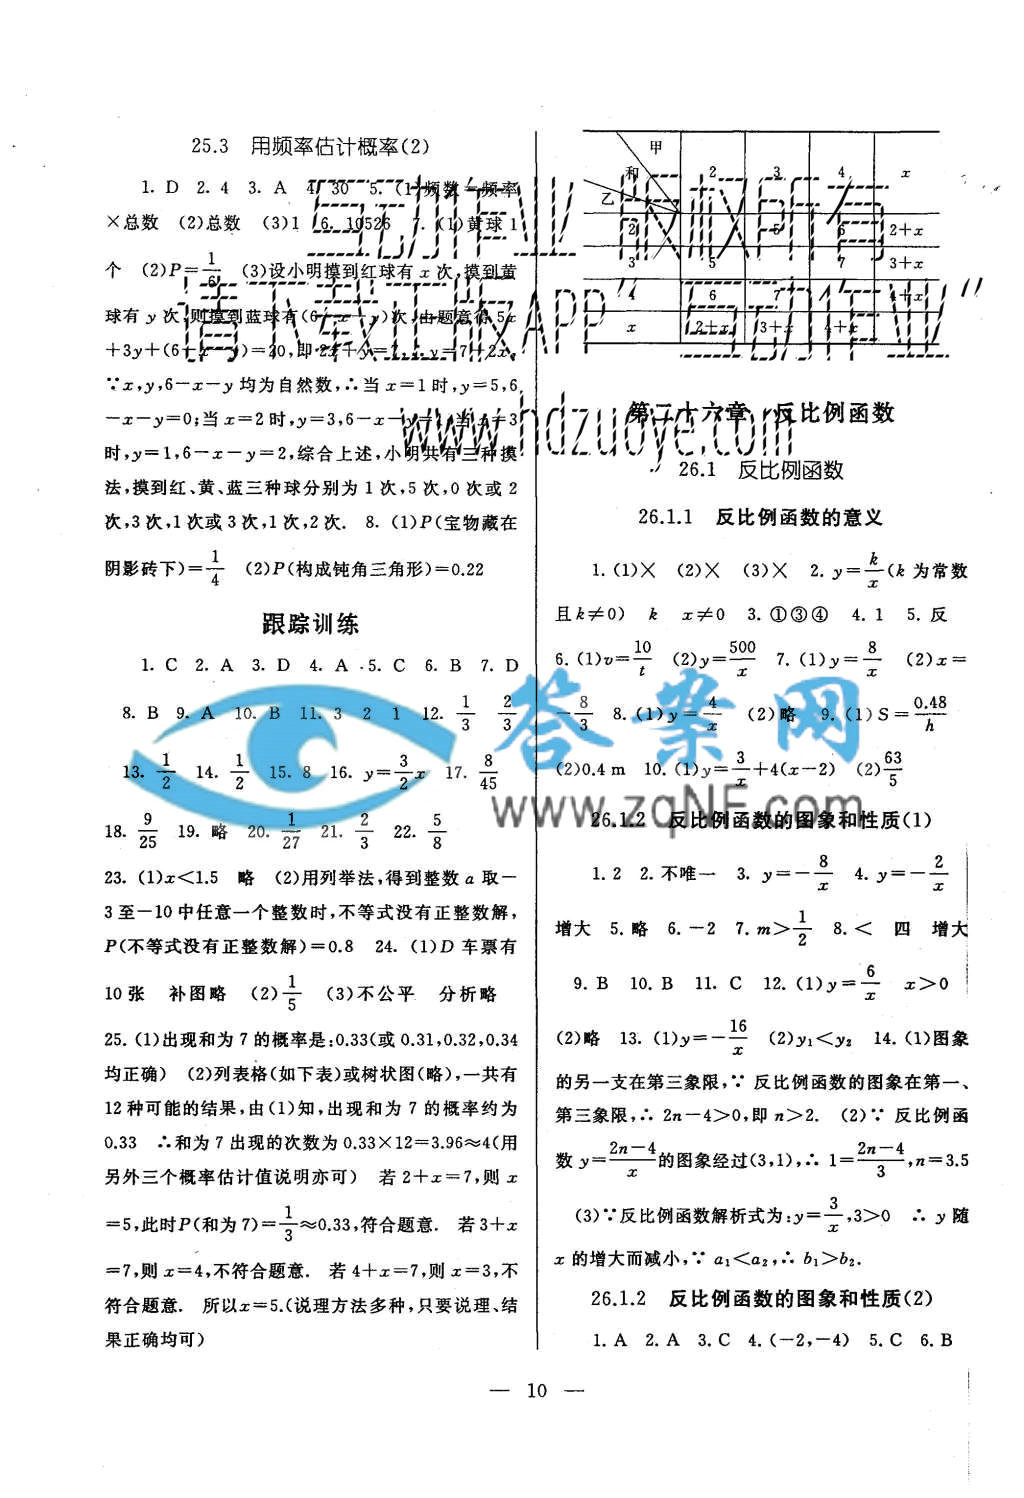 25.3 用频率估计概率(2)
1. D 2. 4 3. A 4. 30 5. (1)频数=频率
×总数 (2)总数 (3)1 6. 10526 7. (1)黄球1
个 (2)P=1/6 (3)设小明摸到红球有 x 次,摸到黄
球有 y 次,则摸到蓝球有(6-x-y)次,由题意得 5x
+3y+(6-x-y)=20,即 2x+y=7,∴y=7-2x,
∵x,y,6-x-y 均为自然数,∴当 x=1时,y=5,6
-x-y=0;当 x=2时,y=3,6-x-y=1;当 x=3
时,y=1,6-x-y=2,综合上述,小明共有三种摸
法,摸到红、黄、蓝三种球分别为 1 次,5 次,0 次或 2
次,3次,1次或3次,1次,2次. 8. (1)P(宝物藏在
阴影砖下)=1/4 (2)P(构成钝角三角形)=0.22
跟踪训练
1. C 2. A 3. D 4. A 5. C 6. B 7. D
8. B 9. A 10. B 11. 3 2 1 12. 1/3 2/3
13. 1/2 14. 1/2 15. 8 16. y=3/2x 17. 8/45
18. 9/25 19. 略 20. 1/27 21. 2/3 22. 5/8
23. (1)x<1.5 略 (2)用列举法,得到整数 a 取-
3至-10中任意一个整数时,不等式没有正整数解,
P(不等式没有正整数解)=0.8 24. (1)D 车票有
10张 补图略 (2)1/5 (3)不公平 分析略
25. (1)出现和为 7 的概率是:0.33(或 0.31,0.32,0.34
均正确) (2)列表格(如下表)或树状图(略),一共有
12种可能的结果,由(1)知,出现和为 7 的概率约为
0.33 ∴和为 7 出现的次数为 0.33×12=3.96≈4(用
另外三个概率估计值说明亦可) 若 2+x=7,则 x
=5,此时P(和为7)=1/3≈0.33,符合题意. 若 3+x
=7,则 x=4,不符合题意. 若 4+x=7,则 x=3,不
符合题意. 所以x=5.(说理方法多种,只要说理、结
果正确均可)
甲
和 2 3 4 x
乙
2 5 6 2+x
3 5 7 3+x
4 6 7 4+x
x 2+x 3+x 4+x
第二十六章 反比例函数
26.1 反比例函数
26.1.1 反比例函数的意义
1. (1)× (2)× (3)× 2. y=k/x(k 为常数
且k≠0) k x≠0 3. ①③④ 4. 1 5. 反
6. (1)v=10/t (2)y=500/x 7. (1)y=8/x (2)x=
-8/3 8. (1)y=4/x (2)略 9. (1)S=0.48/h
(2)0.4 m 10. (1)y=3/x+4(x-2) (2)63/5
26.1.2 反比例函数的图象和性质(1)
1. 2 2. 不唯一 3. y=-8/x 4. y=-2/x
增大 5. 略 6. -2 7. m>1/2 8. < 四 增大
9. B 10. B 11. C 12. (1)y=6/x x>0
(2)略 13. (1)y=-16/x (2)y₁<y₂ 14. (1)图象
的另一支在第三象限,∵ 反比例函数的图象在第一、
第三象限,∴ 2n-4>0,即 n>2. (2)∵ 反比例函
数 y=2n-4/x的图象经过(3,1),∴ 1=2n-4/3,n=3.5
(3)∵反比例函数解析式为:y=3/x,3>0 ∴ y 随
x 的增大而减小,∵ a₁<a₂,∴ b₁>b₂.
26.1.2 反比例函数的图象和性质(2)
1. A 2. A 3. C 4. (-2,-4) 5. C 6. B
— 10 —
请下载正版APP
www.hdzuoye.com
答案网
www.zqNF.com